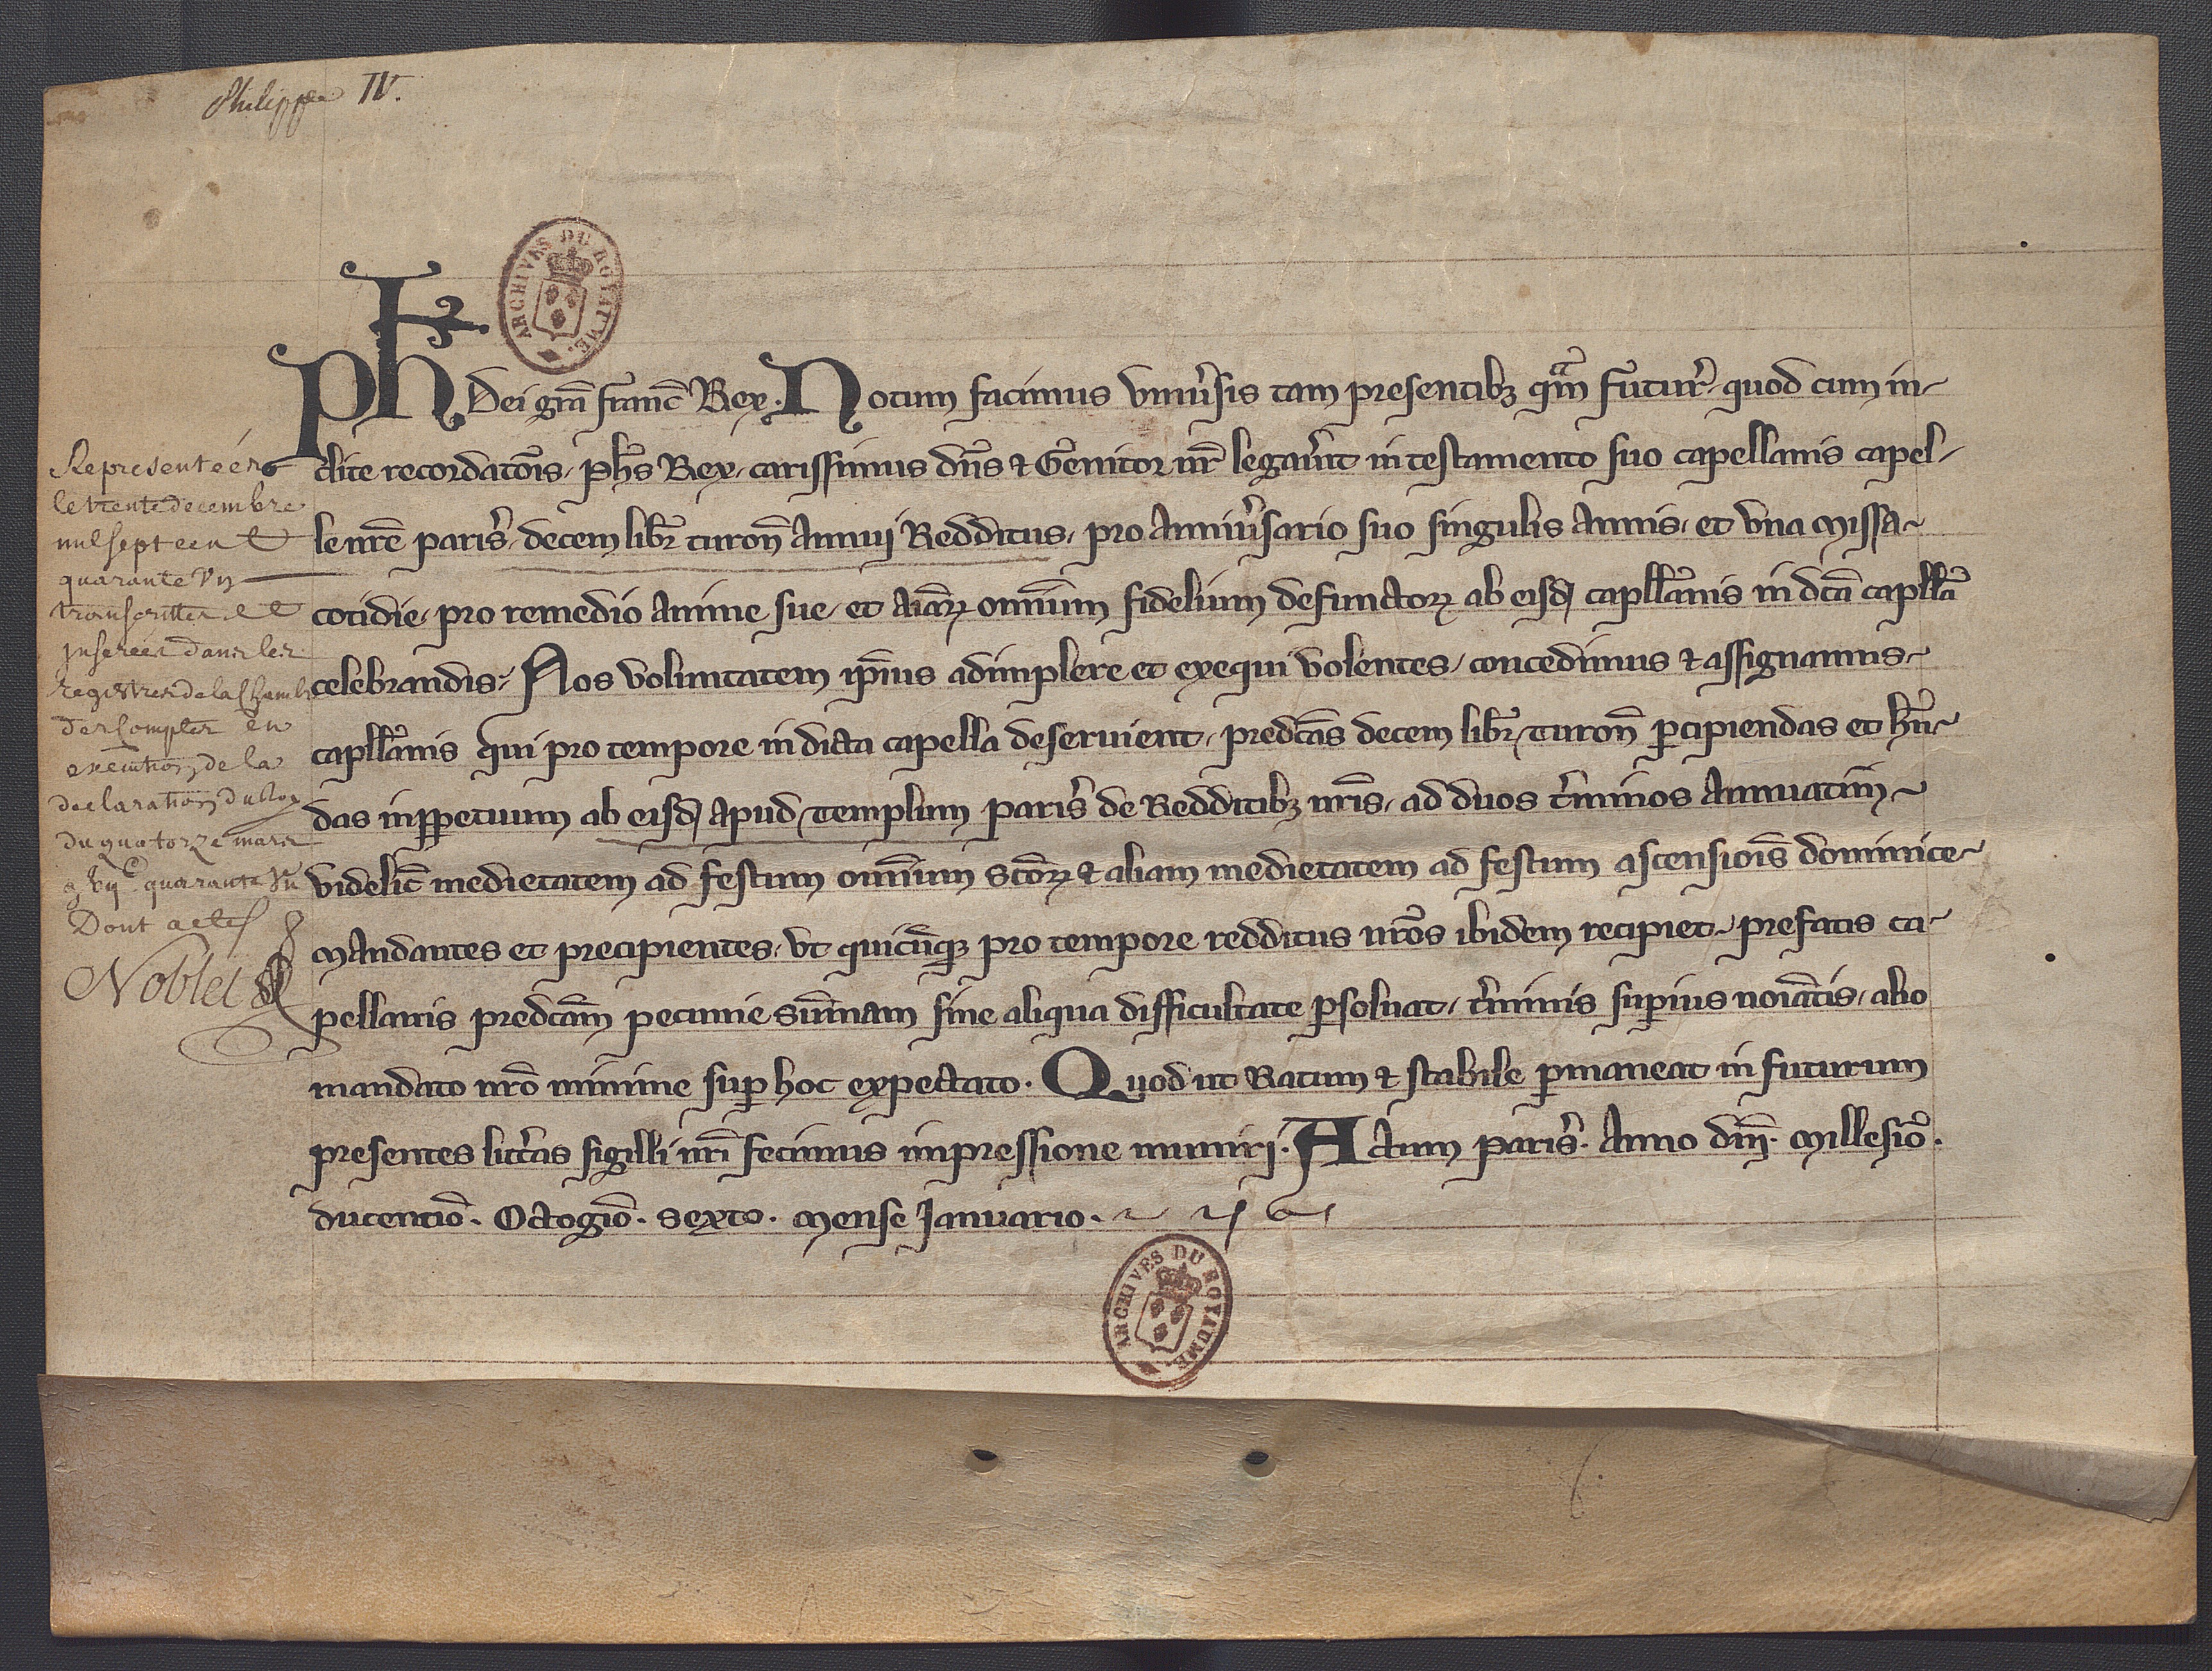 Philippe IV.
ARCHIVES DU ROYAUME.
Ph Dei gr̄a franc̄ Rex. Notum facimus vniu̓sis tam presentibꝫ qᵃ̄m futur̓. quod cum in-
clite recordatōis. ph̄s Rex. carissimus dn̄s ⁊ Genitor nr̄ legau̓it in testamento suo capellanis capel-
le nr̄e paris̓. decem libr̓ turoñ Annuj Redditus. pro Anniu̓sario suo singulis Annis. et vna Missa
cotidie. pro remedio Anime sue. et Aīaꝝ omīum fidelium defunctoꝝ ab eisdꝫ capll̓anis in dc̄a capll̓a
celebrandis. Nos voluntatem ip̄ius adimplere et exequi volentes. concedimus ⁊ assignamus
capll̓anis qui pro tempore in dicta capella deseruient. predc̄as decem libr̓ turoñ ꝑcipiendas et hn̄-
das inꝑpetuum ab eisdꝫ apud templum paris̓ de Redditibꝫ nr̄is. ad duos t̓minos Annuatim
videlic̄ medietatem ad festum omīum Sc̄oꝝ ⁊ aliam medietatem ad festum ascensiōis dominice
Mandantes et precipientes. vt quicūqꝫ pro tempore redditus nr̄os ibidem recipiet. prefatis ca-
pellanis predc̄am pecunie sūmam sine aliqua difficultate ꝑsoluat. t̓minis suꝑius noīatis. alio
mandato nr̄o minime suꝑ hoc expectato. Quod ut Ratum ⁊ stabile ꝑmaneat in futurum
presentes litt̓as sigilli nr̄i fecimus impressione munirj. Actum paris̓. Anno dn̄j. Millesiō.
ducentiō. Octogiō. sexto. Mense Januario.
Representées
le trente decembre
mil sept cen t
quarante Un
transcrittes et
Inserées dans les
registres de la Chambr
des Comptes en
execution de la
declaration du Roy
du quatorze mars
g vijᶜ quarante Un
Dont acte
Noblet
ARCHIVES DU ROYAUME.